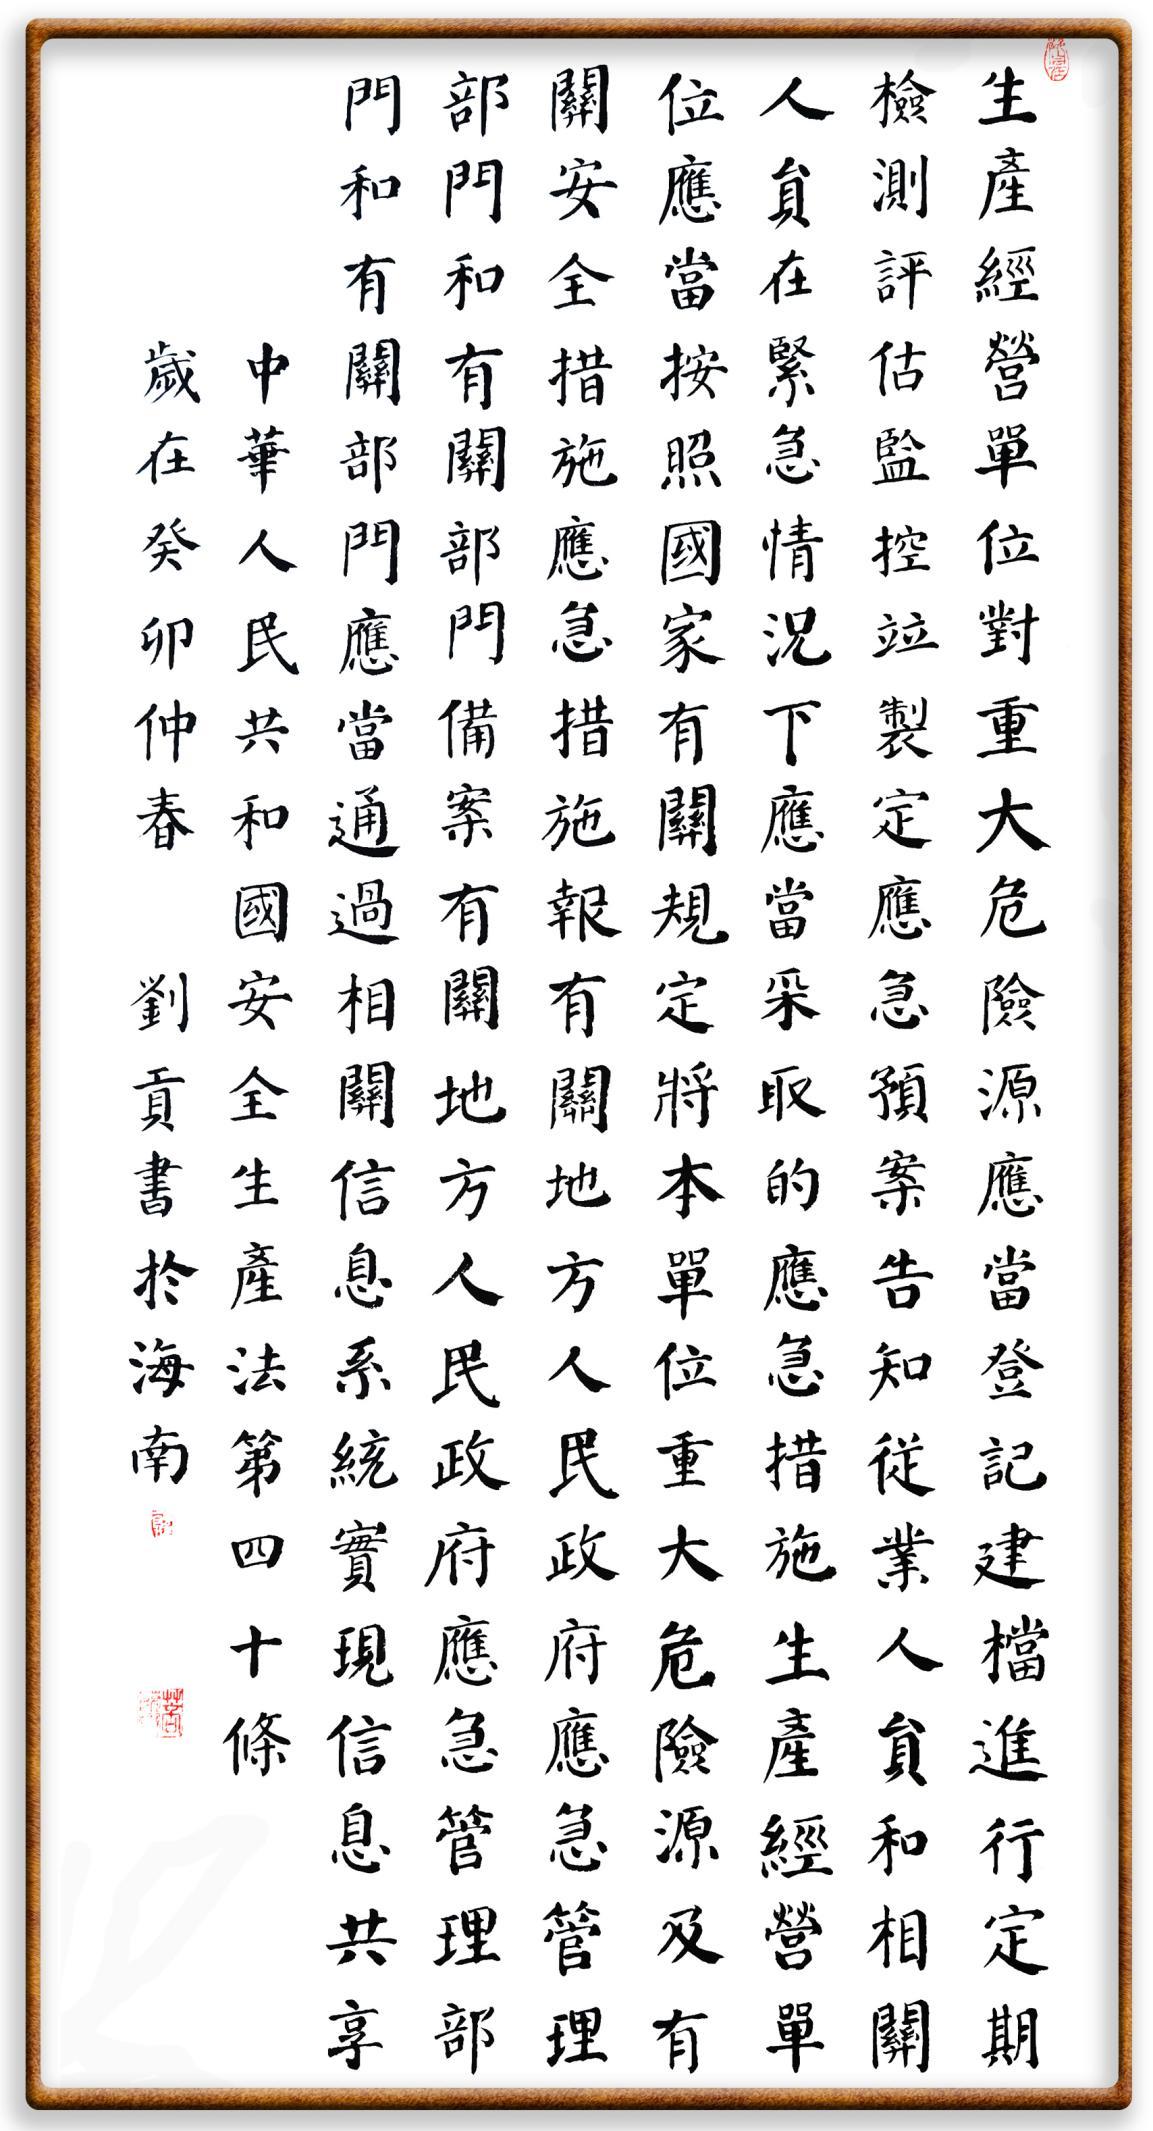 生產經營單位對重大危險源應當登記建檔進行定期
檢測評估監控竝製定應急預案告知從業人員和相關
人員在緊急情況下應當采取的應急措施生產經營單
位應當按照國家有關規定將本單位重大危險源及有
關安全措施應急措施報有關地方人民政府應急管理
部門和有關部門備案有關地方人民政府應急管理部
門和有關部門應當通過相關信息系統實現信息共享
中華人民共和國安全生產法第四十條
歲在癸卯仲春 劉貢書於海南